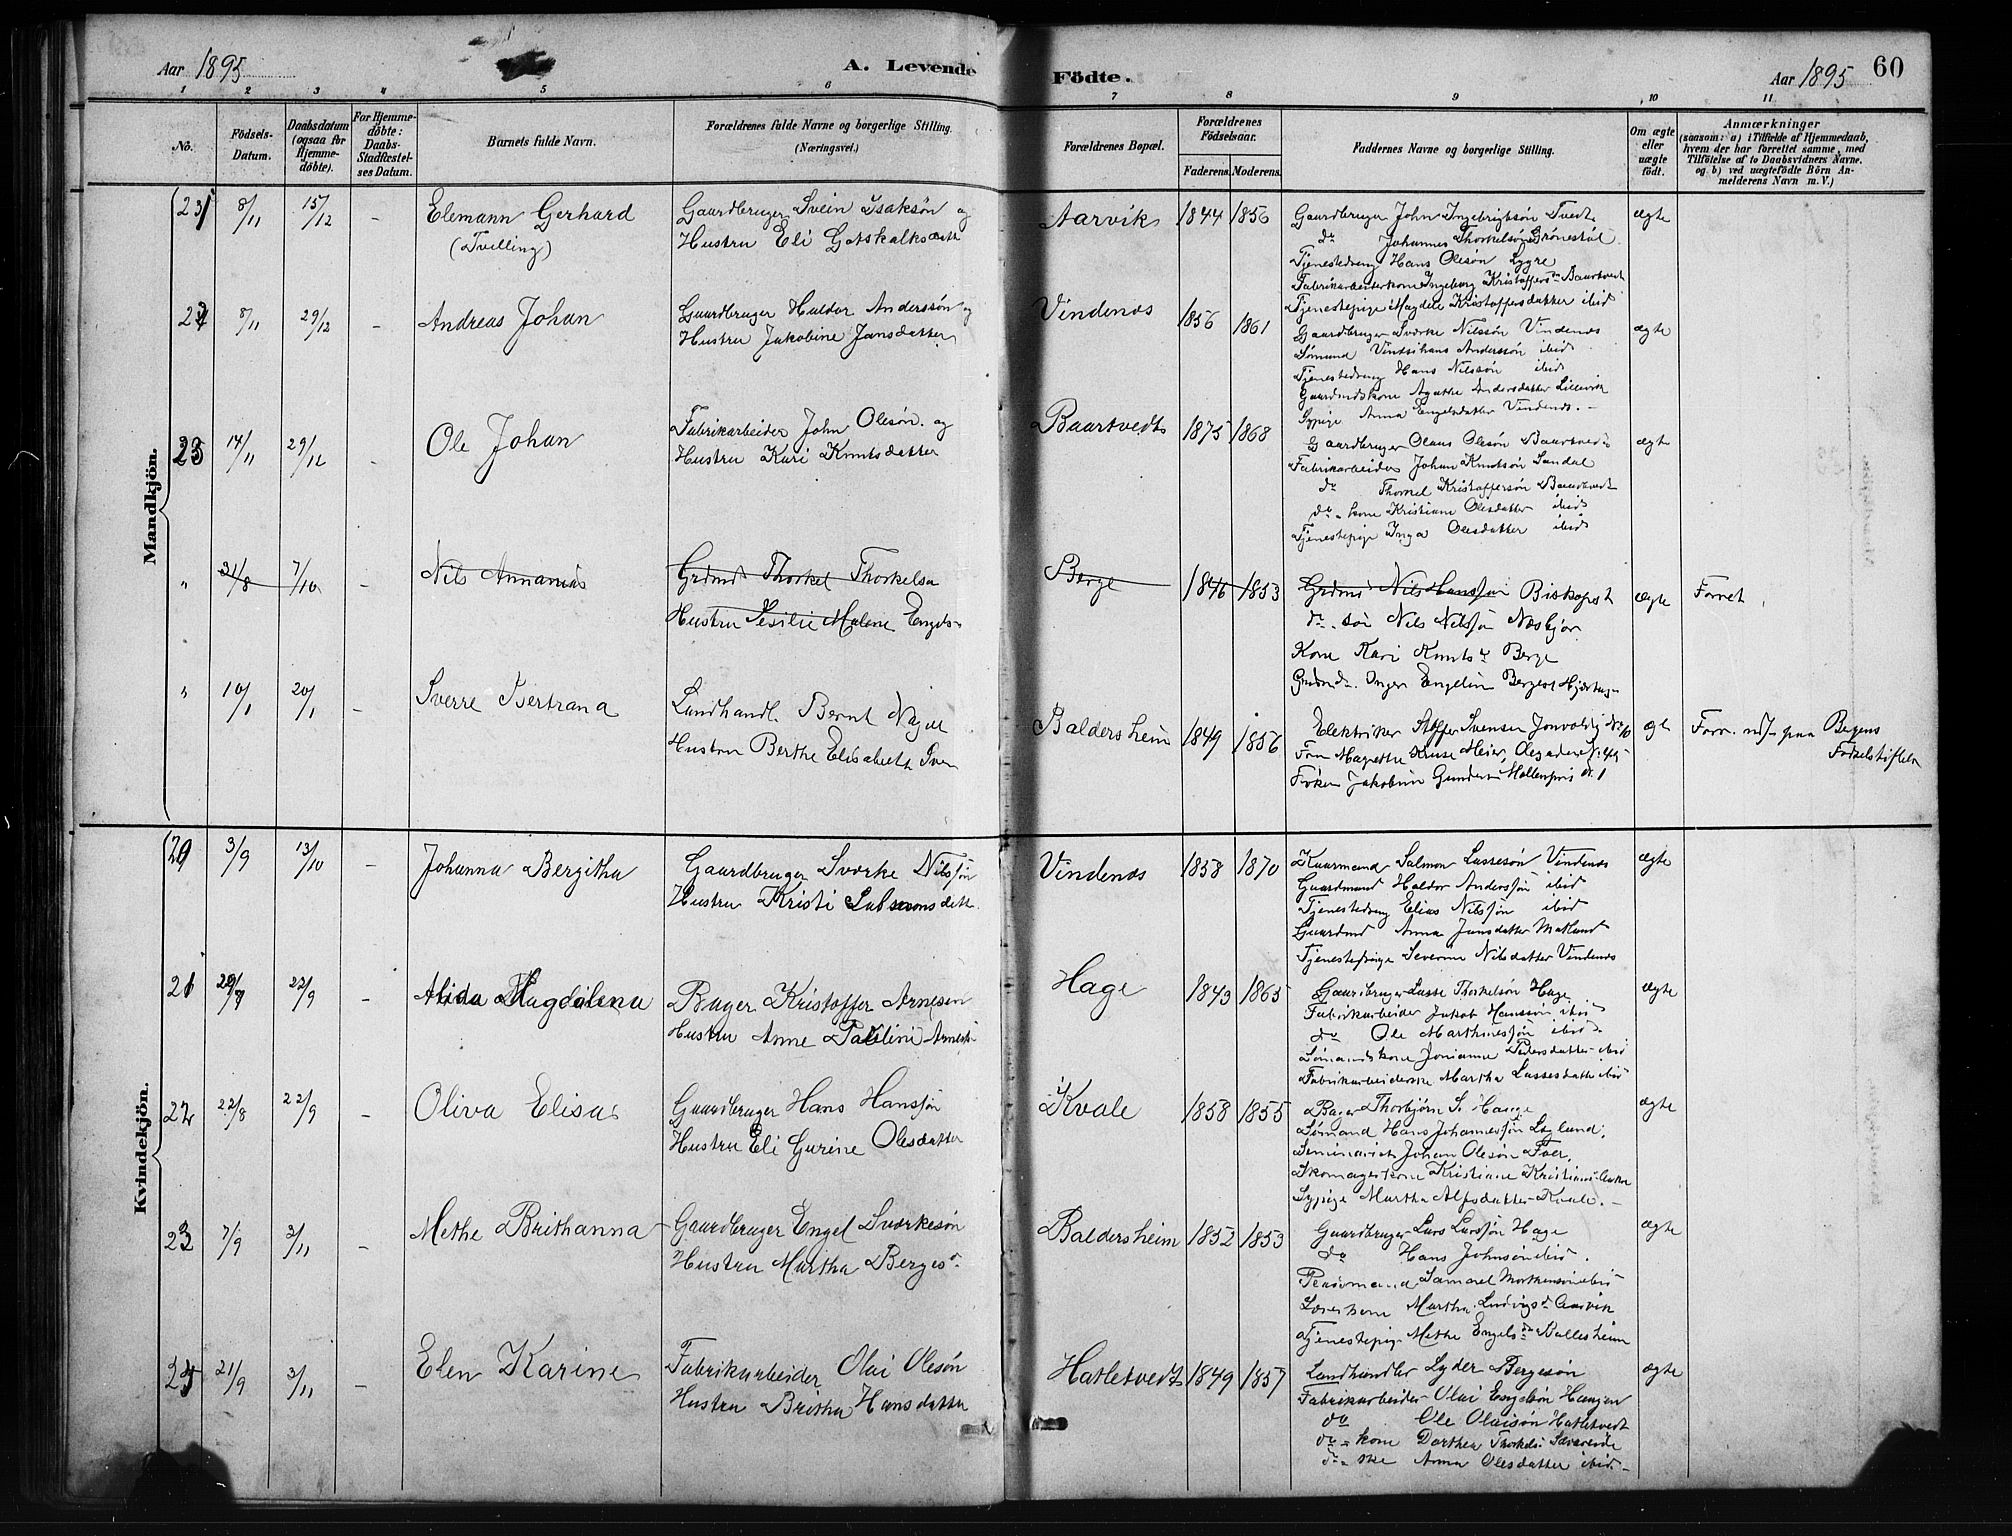 Aar 1895
A. Levende Födte.
Aar 1895 60
1 2 3 4 5 6 7 8 9 10 11
No.
Födsels-Datum.
Daabsdatum (ogsaa for Hjemme-döbte).
For Hjemme-döbte: Daabs-Stadfæstel-ses Datum.
Barnets fulde Navn.
Forældrenes fulde Navne og borgerlige Stilling.
(Næringsvei.)
Forældrenes Bopæl.
Forældrenes Födselsaar.
Faderens. Moderens.
Faddernes Navne og borgerlige Stilling.
Om ægte eller uægte födt.
Anmærkninger
(saasom: a) i Tilfælde af Hjemmedaab,
hvem der har forrettet samme, med
Tilföielse af to Daabsvidners Navne.
og b) ved uægtefödte Börn An-
melderens Navn m. V.)
Mandkjön.
21 8/11 15/12 - Elemann Gerhard
(Tvilling)
Gaardbruger Svein Isaksøn og
Hustru Eli Gotskalksdatt
Aarvik 1844 1856
Gaardbruger John Ingebrigtsøn Tvedt
do Johannes Thorkelsøn Grønestøl
Tjenestedreng Hans Olesøn Lygre
Fabrikarbeiderkone Ingeborg Kristoffersd. Baartvedt
Tjenestepige Magdele Kristoffersdatter ibid
ægte
22 8/11 29/12 - Andreas Johan
Gaardbruger Haldor Anderssøn og
Hustru Jakobine Jansdatter
Vindenes 1856 1861
Gaardbruger Sværke Nilssøn Vindenes
Sømand Vindsihans Anderssøn ibid
Tjenestedreng Hans Nilssøn ibid
Gaardmdskone Agathe Andersdatter Lillevik
Sypige Anna Engelsdatter Vindenes. -
ægte
23 14/11 29/12 - Ole Johan
Fabrikarbeider John Olesøn. og
Hustru Kari Knutsdatter
Baartvedt 1875 1868
Gaardbruger Olaus Olesøn Baartvedt
Fabrikarbeider Johan Knutsøn Sandal
do Thorkel Kristoffersøn Baartvedt
do - kone Kristiane Olesdatter ibid
Tjenestepige Inga Olesdatter ibid
ægte
" 31/8 7/10 - Nils Annanias
Grdmd Thorkel Thorkelsen
Hustru Sesilie Malene Engels-
Berge 1846 1853
Grdmd Nils Hanssøn Biskopst
do. søn Nils Nilsøn Næsbjør
Kone Kari Knutsd. Berge
Grdmd. Inger Engeline Berge
ægte Forret
" 10/1 20/1 - Sverre Bertrana
Landhandl. Bernt Nagel
Hustru Berthe Elisabeth
Baldersheim 1849 1856
Elektriker Stoffer Svensen Jonvoldsg No 10
Fru Magrethe Kruse Meier,
Frøken Jakobine Gundersen Møllenpris
ægt Forr. paa Bergens
Fødselstiftelse
Kvindekjön.
20 3/9 13/10 - Johanna Bergitha
Gaardbruger Sværke Nilssøn
Hustru Kristi Salomonsdatt.
Vindenes 1858 1870
Kaarmand Salmon Lassesøn Vindenes
Gaardmand Haldor Anderssøn ibid
Tjenestedreng Elias Nilssøn ibid
Gaardmd Anna Jansdatter Matland
Tjenestepige Severine Nilsdatter Vindenes
ægte
21 22/9 - Alida Magdalena
Bager Kristoffer Arnesen
Hustru Anne Pauline Arnesen
Hage 1843 1865
Gaardbruger Lasse Thorkelsøn Hage
Fabrikarbeider Jakob Hanssøn ibid
do Ole Marthinessøn ibid
Sømandskone Jonianne Pedersdatter ibid
Fabrikarbeiderske Martha Lassesdatter ibid
ægte
22 22/8 22/9 - Oliva Elisa
Gaardbruger Hans Hanssøn
Hustru Eli Gurine Olesdatter
Kvale 1858 1855
Bager Thorbjørn S. Hauge
Sømand Hans Johannessøn Løland,
Seminarist Johan Olesøn Foer,
Skomagerkone Kristiane Kristians-
Sypige Martha Alfsdatter Kvale. -
ægte
23 7/9 3/11 - Methe Brithanna
Gaardbruger Engel Sværkesøn
Hustru Martha Bergesd.
Baldersheim 1852 1853
Gaardbruger Lars Larssøn Hage
do Hans Johnsøn ibid.
Pensmand Samuel Mortensøn ibid
Martha Ludvigsd. Aarvik
Tjenestepig Methe Engelsd. Ballesheim
ægte
24 21/9 3/11 - Elen Karine
Fabrikarbeider Olai Olesøn
Hustru Britha Hansdatter
Hatletvedt 1849 1857
Landhandler Lyder Bergesøn
Fabrikarbeider Olai Engelsøn Haugen
do Ole Olaisøn Hatletvedt
do - kone Dorthea Thorkelsd. Sævareide
do - ske Anna Olesdatter ibid. -
ægte